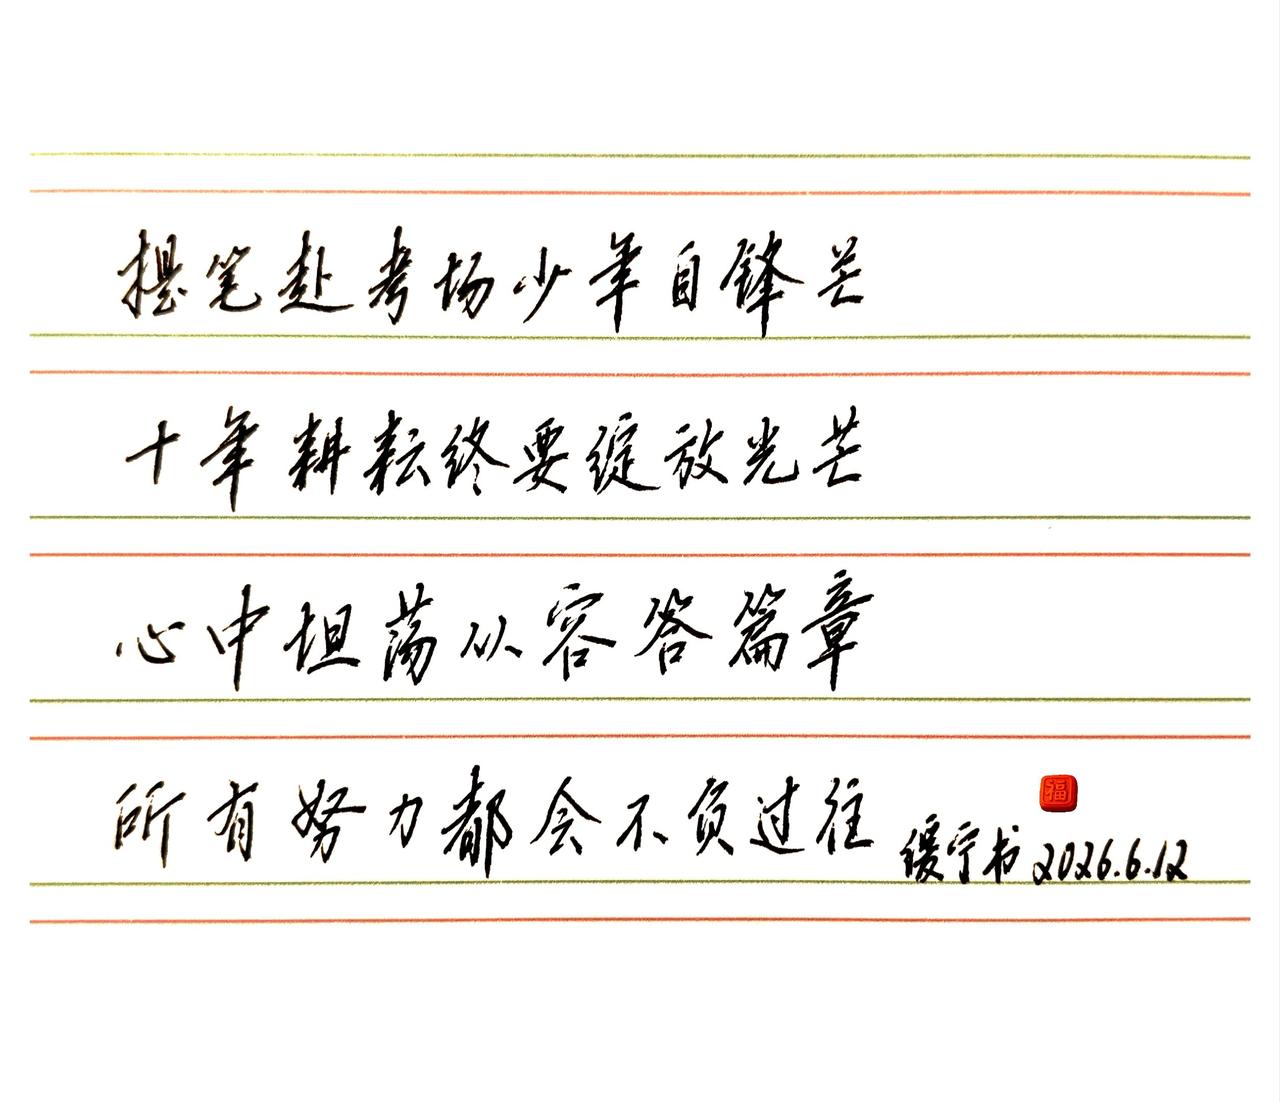 提笔赴考场少年自锋芒
十年耕耘终要绽放光芒
心中坦荡从容答篇章
所有努力都会不负过往
福
缓宁书 2026.6.12